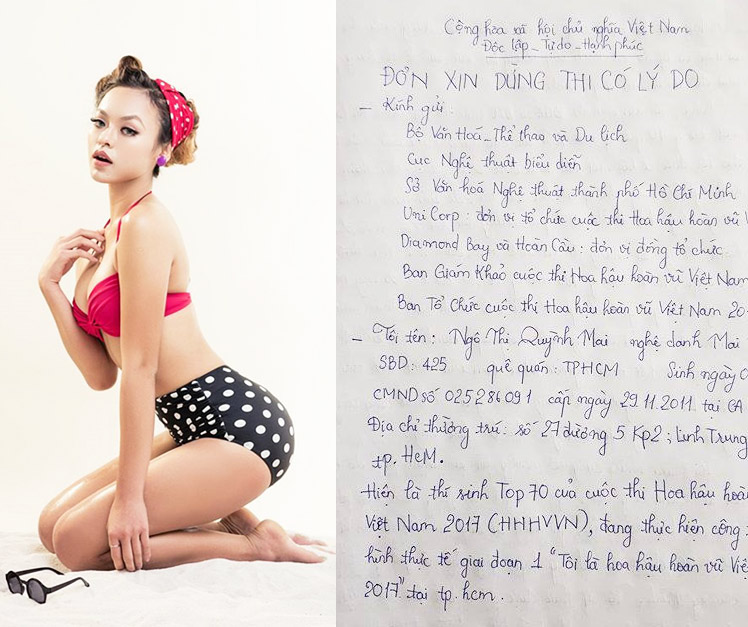 Cộng hòa xã hội chủ nghĩa Việt Nam
Độc lập - Tự do - Hạnh phúc
ĐƠN XIN DỪNG THI CÓ LÝ DO
- Kính gửi :
Bộ Văn Hoá - Thể thao và Du lịch
Cục Nghệ thuật biểu diễn
Sở Văn hoá Nghệ thuật thành phố Hồ Chí Minh
Uni Corp : đơn vị tổ chức cuộc thi Hoa hậu hoàn vũ V
Diamond Bay và Hoàn Cầu : đơn vị đồng tổ chức
Ban Giám Khảo cuộc thi Hoa hậu hoàn vũ Việt Nam
Ban Tổ Chức cuộc thi Hoa hậu hoàn vũ Việt Nam 20
- Tôi tên : Ngô Thị Quỳnh Mai nghệ danh Mai
SBD : 425 quê quán : TPHCM Sinh ngày
CMND số 025286091 cấp ngày 29.11.2011 tại CA
Địa chỉ thường trú : số 27 đường 5 Kp2 ; Linh Trung
tp. HCM.
Hiện là thí sinh Top 70 của cuộc thi Hoa hậu hoà
Việt Nam 2017 (HHHVVN), đang thực hiện công
hình thực tế giai đoạn 1 "Tôi là hoa hậu hoàn vũ Việ
2017" tại tp. hcm.